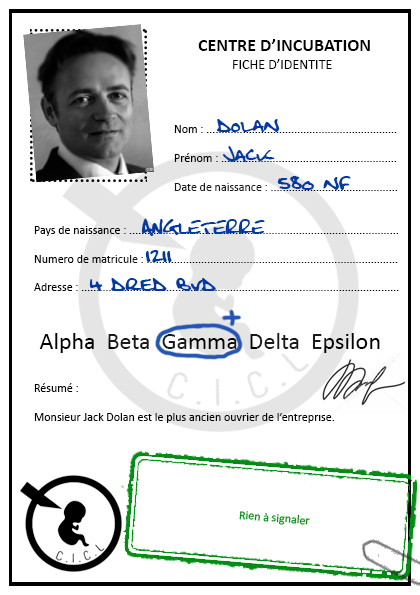 CENTRE D'INCUBATION
FICHE D'IDENTITE
Nom : DOLAN
Prénom : JACK
Date de naissance : 580 NF
Pays de naissance : ANGLETERRE
Numero de matricule : 1211
Adresse : 4 DRED BVD
+
Alpha Beta Gamma Delta Epsilon
C.I.C.L
Résumé :
Monsieur Jack Dolan est le plus ancien ouvrier de l'entreprise.
Rien à signaler
C.I.C.L